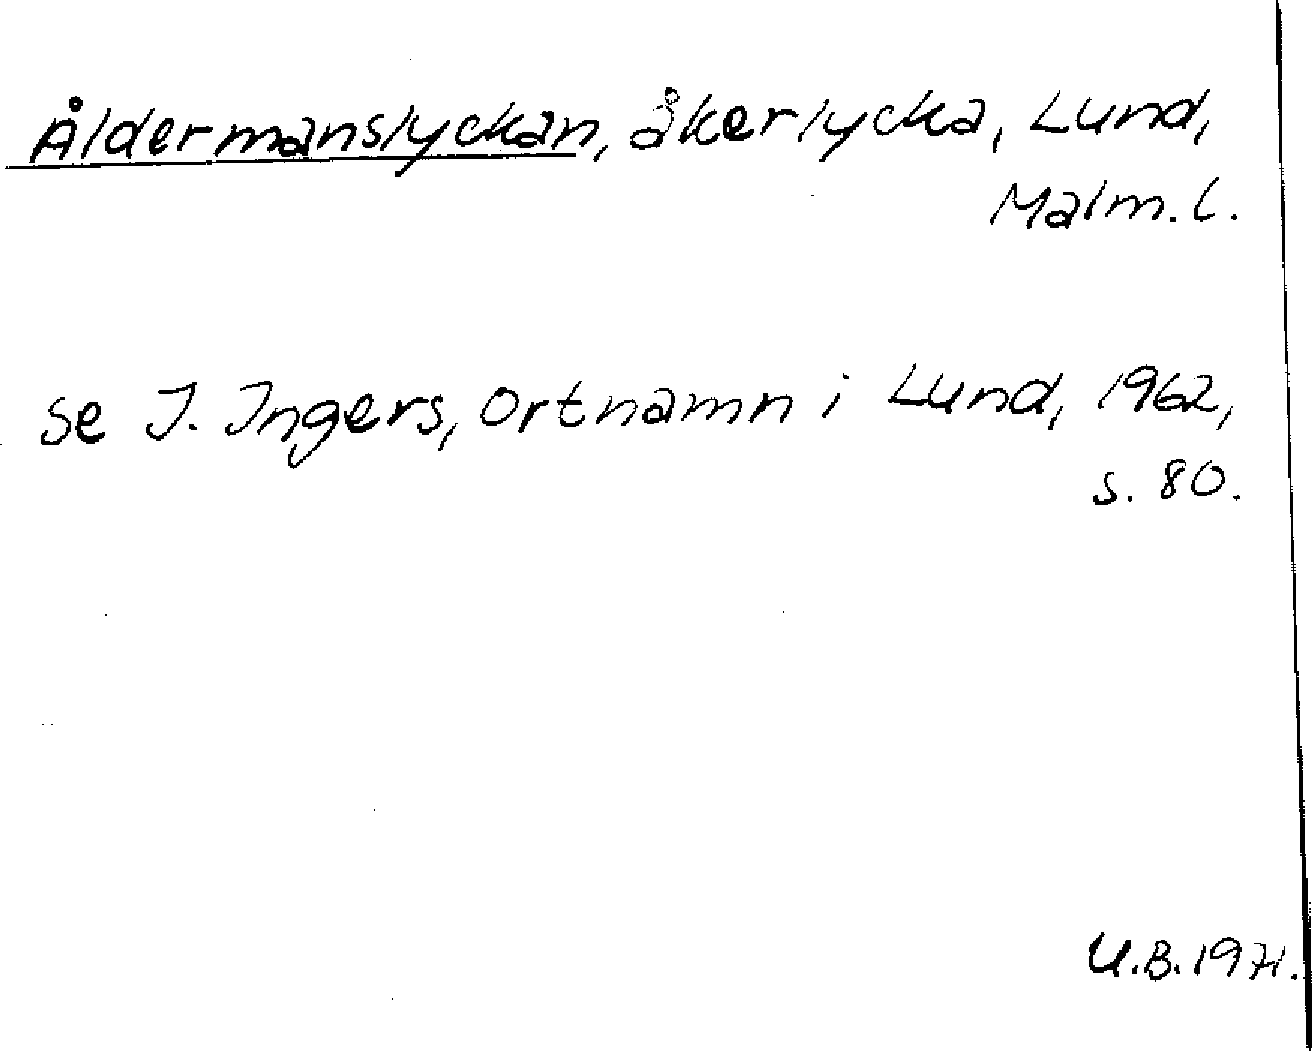 Åldermanslyckan, åkerlycka, Lund,
Malm. l.
se I. Ingers, Ortnamn i Lund, 1962,
s. 80.
U.B. 1971.